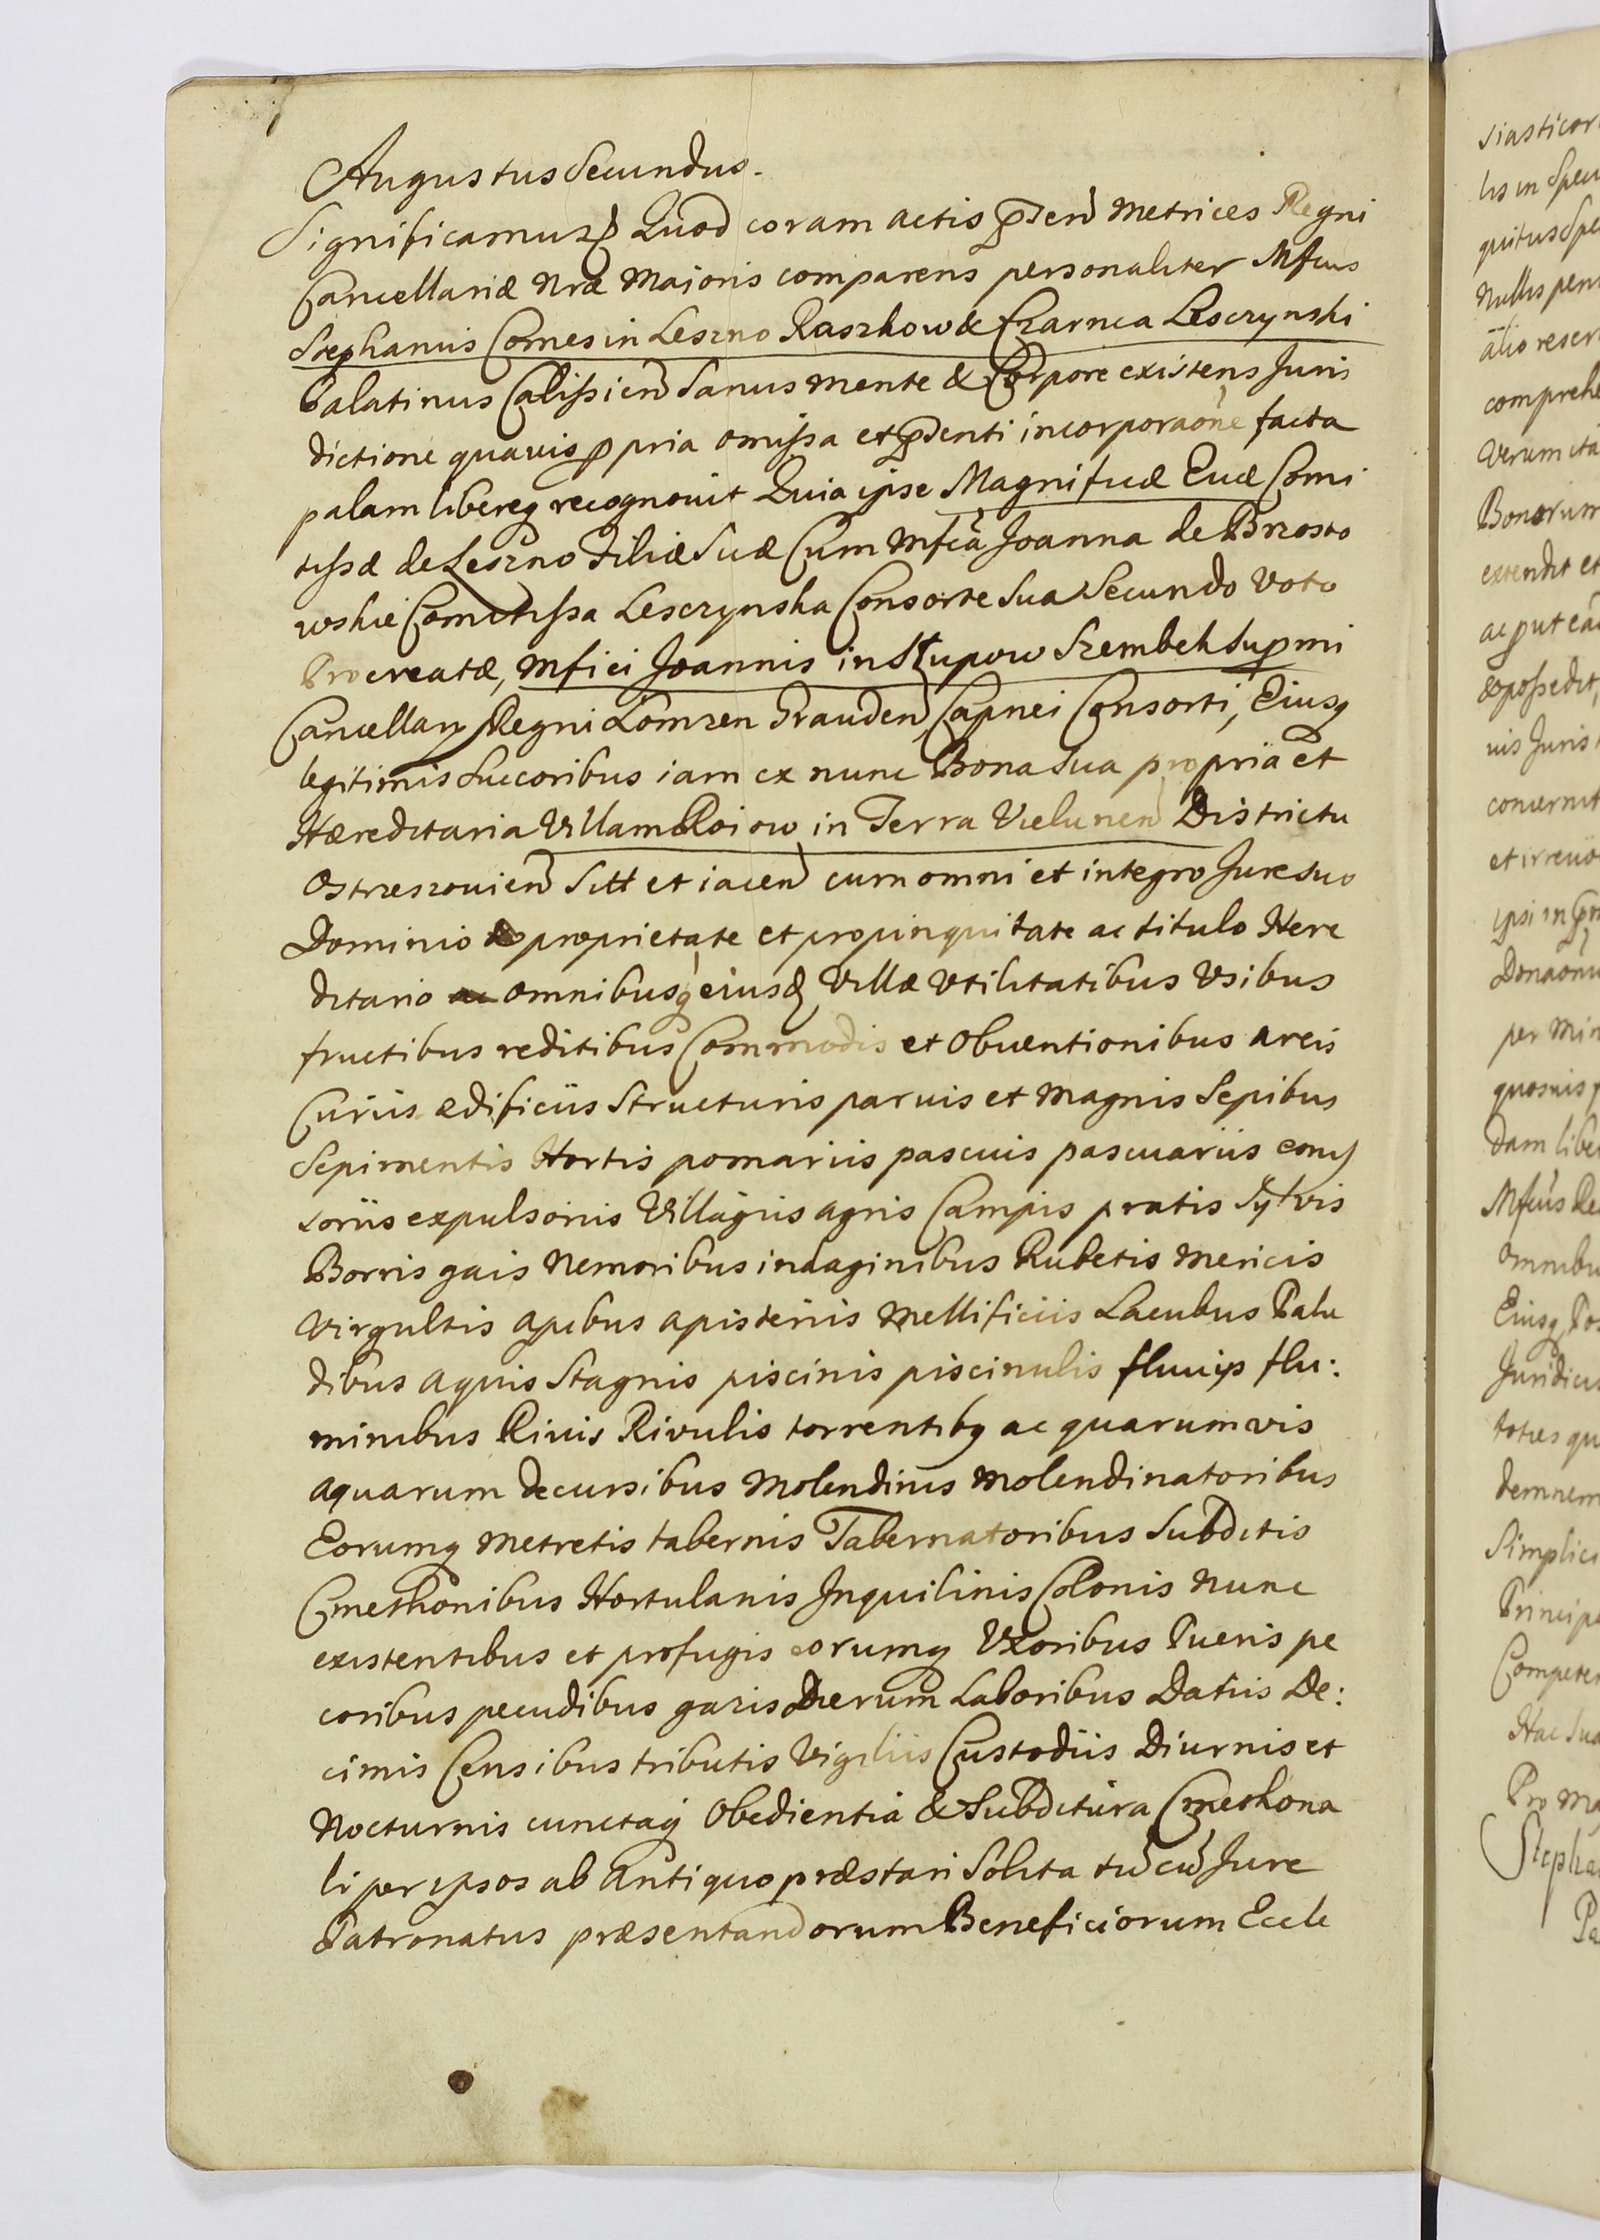 Augustus Secundus.
Significamus Quod coram actis p̄sen̄ Metrices Regni
Cancellariæ Nræ Maioris comparens personaliter Mfcus
Stephanus Comes in Leszno Raszkow & Czarnca Lesczynski
Palatinus Calissien̄ Sanus mente & Corpore existens Juris
dictione quavis ppria omissa et p̄senti incorporaōne facta
palam libereq recognovit Quia ipse Magnificæ Evæ Comi
tissæ de Leszno Filiæ Suæ Cum Mfcā Joanna de Brzosto
wskie Comitissa Lesczynska Consorte Sua Secundo Voto
Procreatæ, Mfici Joannis in Słupow Szembek Supmi
Cancellarij Regni Lomzen Grauden̄ Capnei Consorti, Eiusq
legitimis Succoribus iam ex nunc Bona Sua propria et
Hæreditaria Villam Roiow in Terra Vielunen̄ Districtu
Ostrzeszovien̄ Sitt et iacen̄ cum omni et integro Jure suo
Dominio proprietate et propinquitate ac titulo Here
ditario omnibusq eiusd Villæ Utilitatibus Usibus
fructibus reditibus Commodis et Obventionibus areis
Curiis ædificiis Structuris parvis et Magnis Sepibus
Sepimentis Hortis pomariis pascuis pascuariis comp
soriis expulsoriis Villagiis agris Campis pratis Sylvis
Borris gais Nemoribus indaginibus Rubetis Mericis
Virgultis apibus apisteriis Mellificiis Lacubus Palu
dibus aquis Stagnis piscinis piscinulis fluviys flu:
minibus Rivis Rivulis torrentibq ac quarumvis
aquarum decursibus Molendinis Molendinatoribus
Eorumq Metretis tabernis Tabernatoribus Subditis
Cmethonibus Hortulanis Jnquilinis Colonis Nunc
existentibus et profugis eorumq Uxoribus Pueris pe
coribus pecudibus gazis Dierum Laboribus Datiis De:
cimis Censibus tributis Vigiliis Custodiis Diurnis et
Nocturnis cunctaq Obedientia & Subditura Cmethona
li per ipsos ab Antiquo præstari Solita tū cū Jure
Patronatus præsentandorum Beneficiorum Eccle